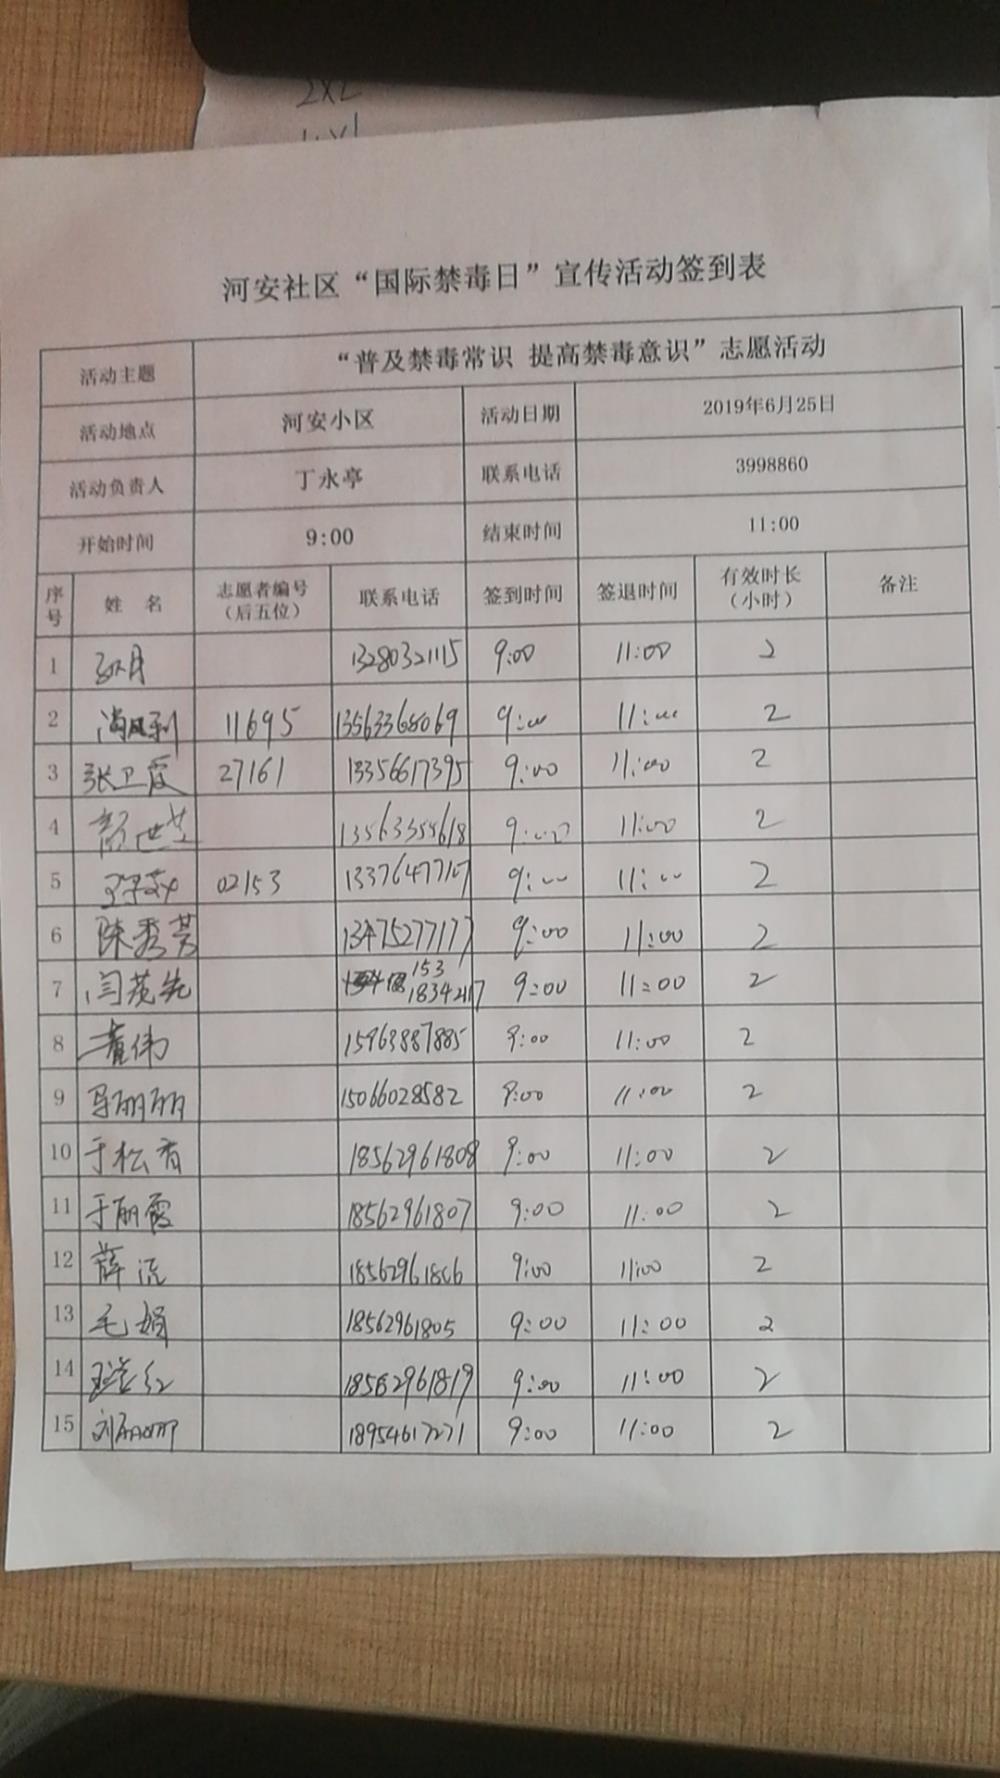 2XL
河安社区“国际禁毒日”宣传活动签到表
活动主题 “普及禁毒常识 提高禁毒意识”志愿活动
活动地点 河安小区 活动日期 2019年6月25日
活动负责人 丁永亭 联系电话 3998860
开始时间 9:00 结束时间 11:00
序号 姓 名 志愿者编号（后五位） 联系电话 签到时间 签退时间 有效时长（小时） 备注
1 13280321115 9:00 11:00 2
2 11695 13563368069 9:00 11:00 2
3 张卫霞 27161 13356617395 9:00 11:00 2
4 13563355618 9:00 11:00 2
5 02153 13376477107 9:00 11:00 2
6 陈秀芳 13475277177 9:00 11:00 2
7 闫茂先 153 18342117 9:00 11:00 2
8 董伟 15963887885 9:00 11:00 2
9 马丽丽 15066028582 9:00 11:00 2
10 于松香 18562961808 9:00 11:00 2
11 于丽霞 18562961807 9:00 11:00 2
12 薛沆 18562961806 9:00 11:00 2
13 毛娟 18562961805 9:00 11:00 2
14 18562961819 9:00 11:00 2
15 刘丽娜 18954617271 9:00 11:00 2